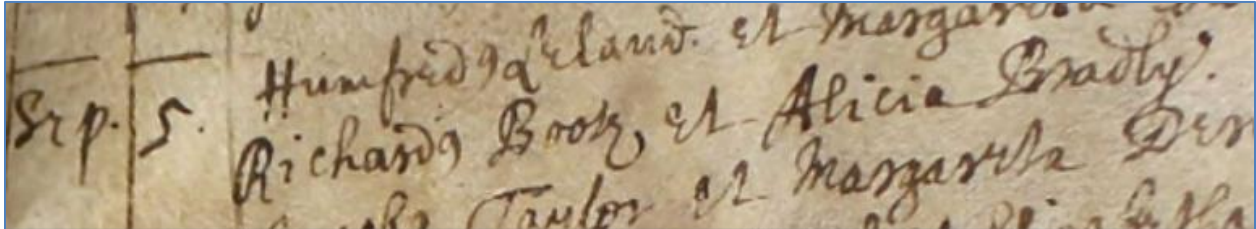 Humfredꝰ Leland. et Margareta
Sep. 5. Richardꝰ Brok, et Alicia Bradly.
Taylor et Margareta Der